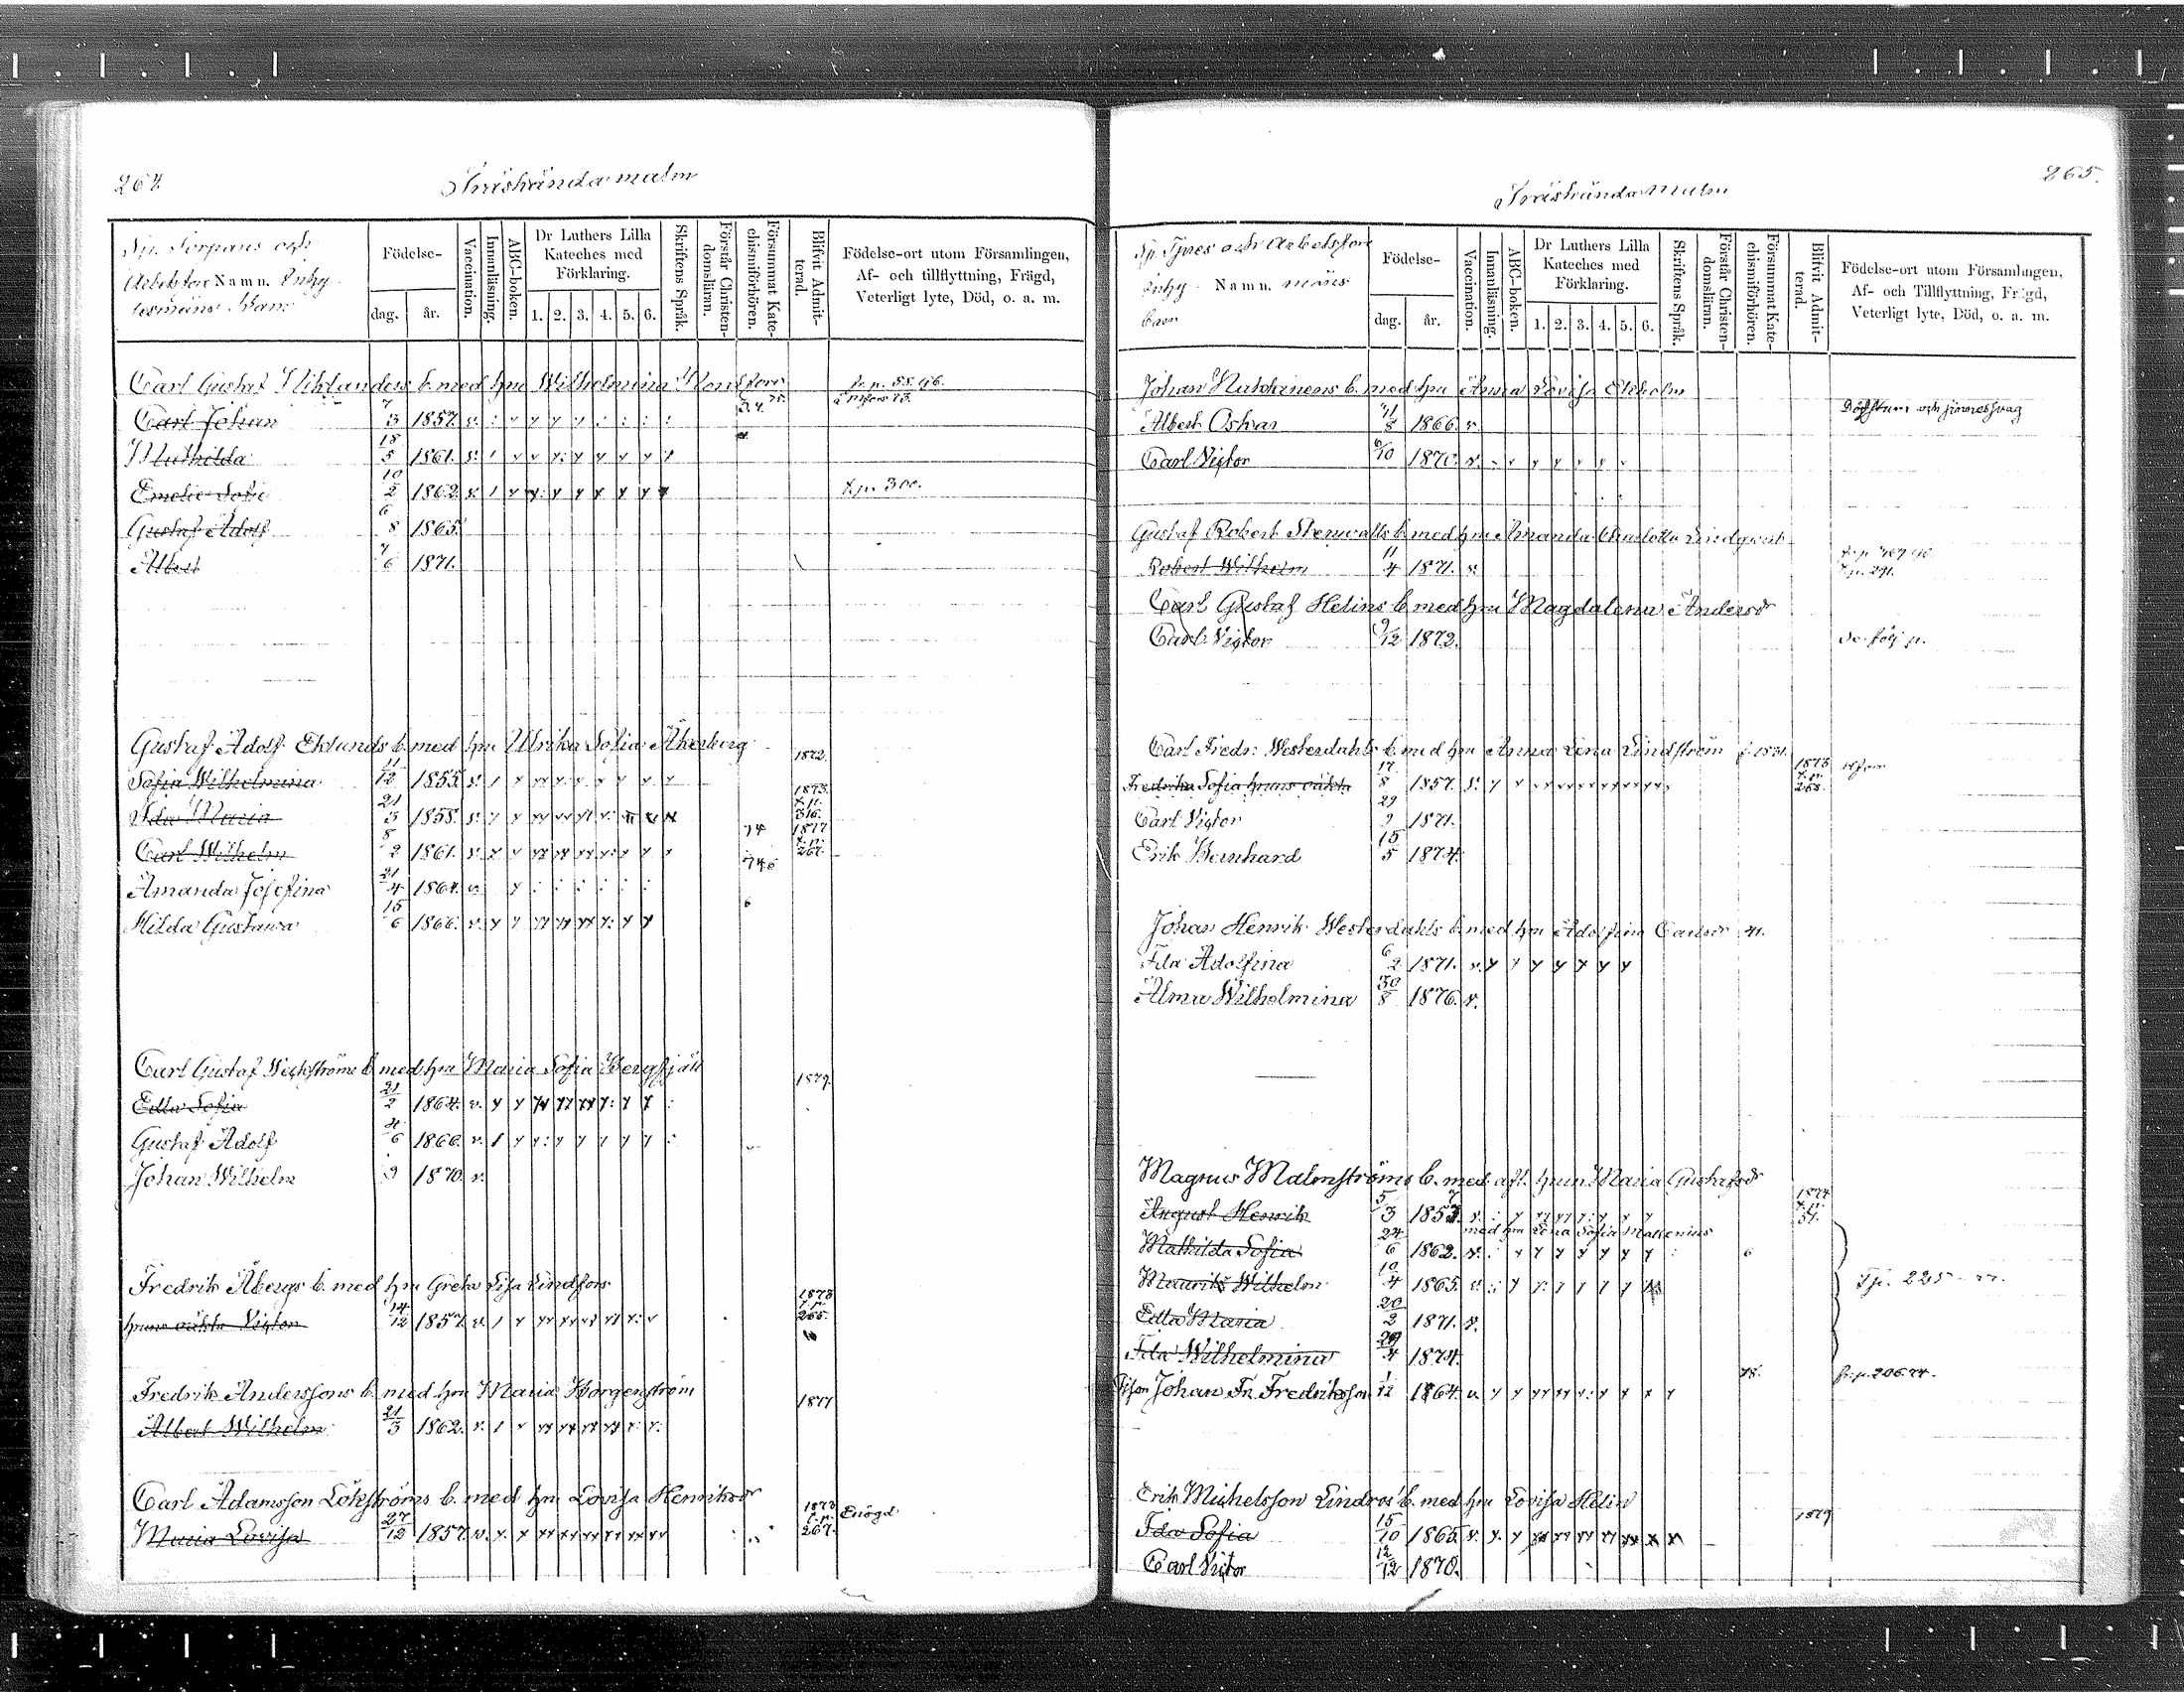 264
Träskända malm
Sp. Torpares och
Arbetskarl Namn. Inhy-
sesmäns Barn
Födelse-
dag.
år.
Vaccination.
Innanläsning.
ABC-boken.
Dr Luthers Lilla
Kateches med
Förklaring.
1. 2. 3. 4. 5. 6.
Skriftens Språk.
Förstår Christen-
domsläran.
Försummat Kate-
chismiförhören.
Blifvit Admit-
terad.
Födelse-ort utom Församlingen,
Af- och tillflyttning, Frägd,
Veterligt lyte, Död, o. a. m.
Carl Gustaf b. med hu Wilhelmina
Carl Johan 7/3 1857. v.
Mathilda 18/5 1861. v.
Emelie Sofie 10/2 1862. v. f. p. 300.
Gustaf Adolf 6/8 1865.
Albert 7/6 1871.
Gustaf Adolf Eklunds b. med hu Ulrika Sofia Åkerberg
Sofia Wilhelmina 11/12 1855. v. 1872.
Ida Maria 21/3 1858. v. 1873. f. p. 316.
Carl Wilhelm 8/2 1861. v. 74 1877 f. p. 267.
Amanda Josefina 21/4 1864. v.
Hilda Gustava 15/6 1866. v.
Carl Gustaf Wickströms b. med hu Maria Sofia Bergfjäll
Edla Sofia 21/2 1864. v. 1879.
Gustaf Adolf 4/6 1866. v.
Johan Wilhelm 9 1870. v.
Fredrik Åbergs b. med hu Greta Lisa Lindfors
huns oäkta Victor 14/12 1857. v. 1873 f. p. 265.
Fredrik Anderssons b. med hu Maria Borgenström
Albert Wilhelm 21/3 1862. v. 1877
Carl Adamsson Lökströms b. med hu Lovisa Henriksdr
Maria Lovisa 27/12 1857. v. 1873 f. p. 267. Enögd
265.
Träskända malm
Namn.
Barn
Födelse-
dag.
år.
Vaccination.
Innanläsning.
ABC-boken.
Dr Luthers Lilla
Kateches med
Förklaring.
1. 2. 3. 4. 5. 6.
Skriftens Språk.
Förstår Christen-
domsläran.
Försummat Kate-
chismiförhören.
Blifvit Admit-
terad.
Födelse-ort utom Församlingen,
Af- och Tillflyttning, Frägd,
Veterligt lyte, Död, o. a. m.
Johan b. med hu Anna Lovisa Ekholm
Albert Oskar 11/8 1866. v. Döfstum och sinnessvag
Carl Victor 6/10 1870. v.
Gustaf Robert Stenvalls b. med hu Amanda Charlotta Lindqvist
Robert Wilhelm 11/4 1871. v. f. p. 291.
Carl Gustaf Helins b. med hu Magdalena Andersdr
Carl Victor 9/12 1872. Se följ p.
Carl Fredr. Westerdahls b. med hu Anna Lena Lindström f. 1831.
Fredrika Sofia hunns oäkta 17/8 1857. v. 1873 f. p. 268.
Carl Victor 29 1871.
Erik Bernhard 15/5 1874.
Johan Henrik Westerdahls b. med hu Adolfina Carlsdr 41.
Ida Adolfina 6/2 1871. v.
Alma Wilhelmina 30/8 1876. v.
Magnus Malmströms b. med afl. hun Maria Gustafsdr
August Henrik 5/3 1853. v. 1874 f. p. 54.
med hu Lena Sofia
Mathilda Sofia 24/6 1862. v. 6
Maurits Wilhelm 10/4 1865. v. 225
Edla Maria 20/2 1871. v.
Ida Wilhelmina 29/4 1874.
Johan Fr. Fredriksson 1/12 1864. v. 78. fr. p. 206.
Erik Michelsson Lindros b. med hu Lovisa Helin
Ida Sofia 15/10 1865. v. 1879
Carl Victor 12/12 1870.